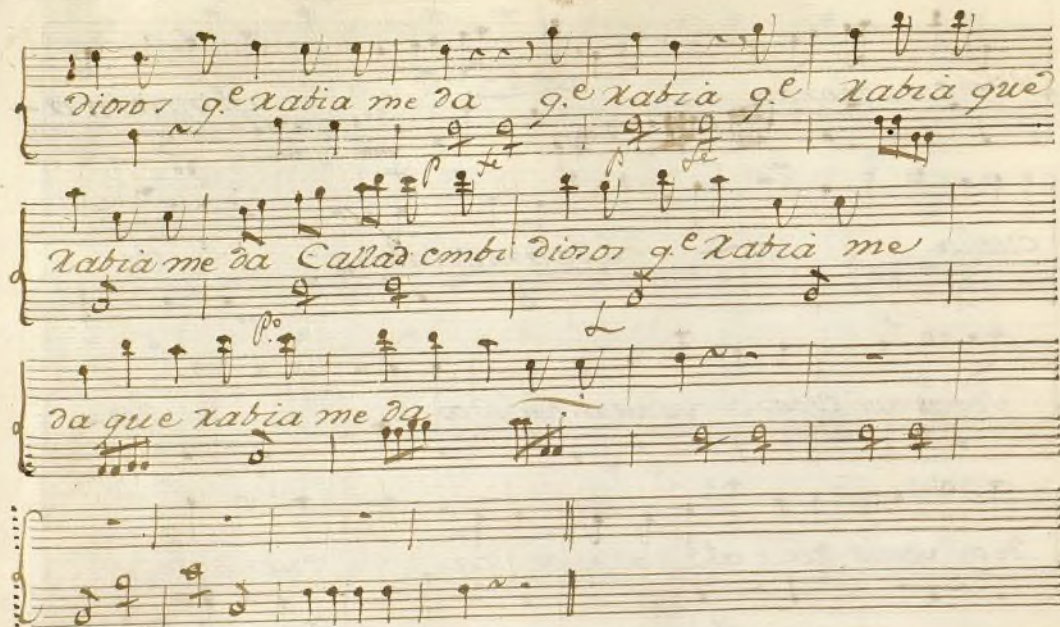 diosos q.e rabia me da q.e rabia q.e rabia que
P fe P fe
rabia me da Callad embi diosos q.e rabia me
P.o
da que rabia me da